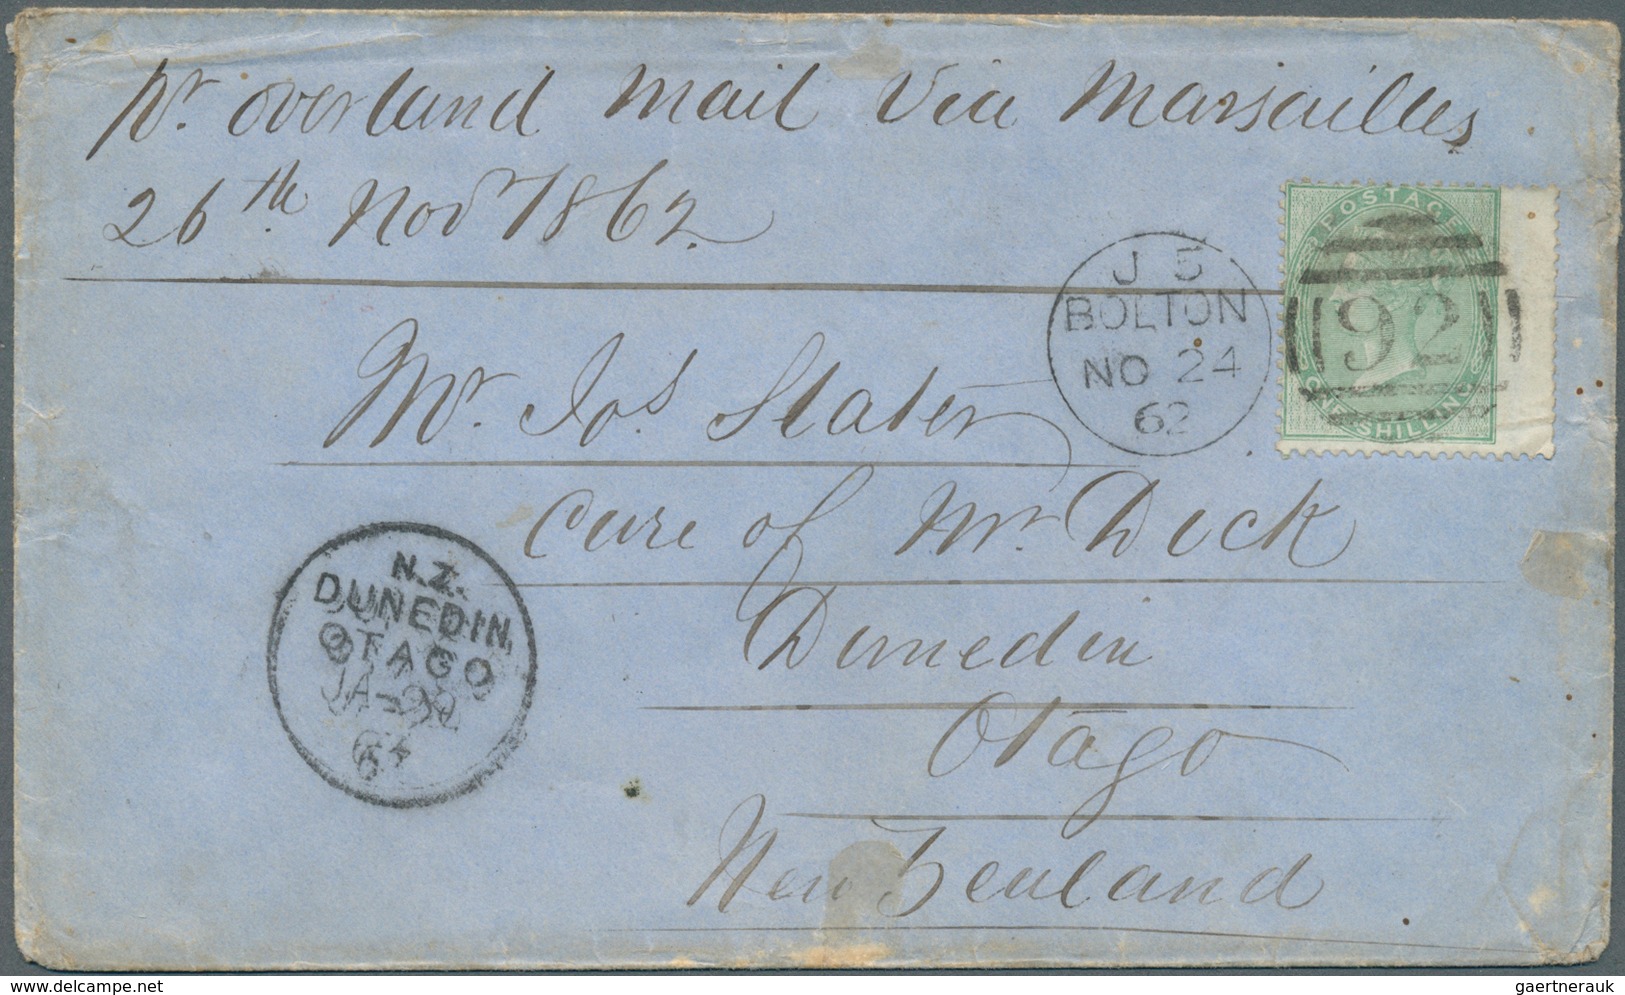 pr. overland Mail Via Marsailles
26th Novr 1862.
POSTAGE
J 5
BOLTON
NO 24
62
92
SHILLING
Mr Jos Slater
Care of Mr Dick
N.Z.
DUNEDIN
OTAGO
JA
63
Dunedin
Otago
New Zealand
www.delcampe.net
gaertnerauk